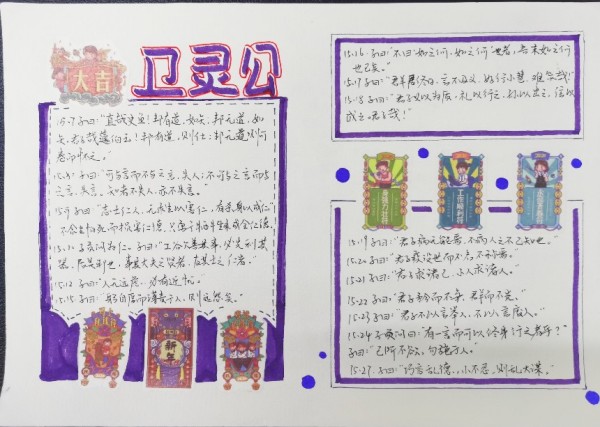 大吉
卫灵公
15·7子曰:"直哉史鱼!邦有道,如矢,邦无道,如
矢。君子哉蘧伯玉!邦有道,则仕;邦无道,则可
卷而怀之。
15·8子曰:"可与言而不与之言,失人;不可与之言而与
之言,失言。知者不失人,亦不失言。
15·9子曰:"志士仁人,无求生以害仁,有杀身以成仁"
15·10子贡问为仁。子曰:"工欲善其事,必先利其
器。居是邦也,事其大夫之贤者,友其士之仁者。
15·12子曰:"人无远虑,必有近忧。
15·15子曰:"躬自厚而薄责于人,则远怨矣。
新年
15·16子曰:"不曰'如之何,如之何'者,吾末如之何
也已矣。"
15·17子曰:"群居终日,言不及义,好行小慧,难矣哉!"
15·18子曰:"君子义以为质,礼以行之,孙以出之,信以
成之。君子哉!
15·19子曰:"君子病无能焉,不病人之不己知也。
15·20子曰:"君子疾没世而名不称焉。
15·21子曰:"君子求诸己,小人求诸人。
15·22子曰:"君子矜而不争,群而不党。
15·23子曰:"君子不以言举人,不以人废言。
15·24子贡问曰:"有一言而可以终身行之者乎?"
子曰:"己所不欲,勿施于人。
15·27子曰:"巧言乱德,小不忍,则乱大谋。